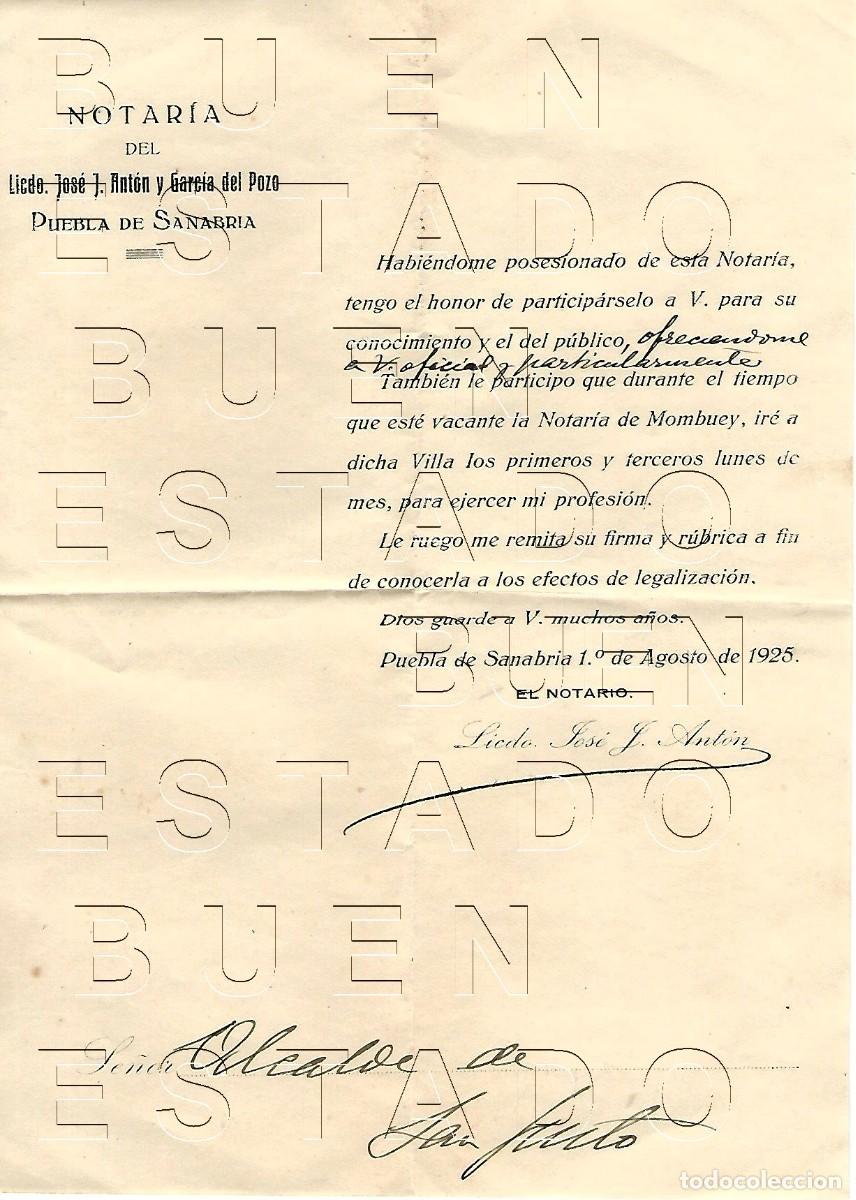 NOTARÍA
DEL
Licdo. José J. Antón y García del Pozo
PUEBLA DE SANABRIA
Habiéndome posesionado de esta Notaría,
tengo el honor de participárselo a V. para su
conocimiento y el del público, ofreciendome
a V. oficial y particularmente
También le participo que durante el tiempo
que esté vacante la Notaría de Mombuey, iré a
dicha Villa los primeros y terceros lunes de
mes, para ejercer mi profesión.
Le ruego me remita su firma y rúbrica a fin
de conocerla a los efectos de legalización.
Dios guarde a V. muchos años.
Puebla de Sanabria 1.º de Agosto de 1925.
EL NOTARIO.
Licdo. José J. Antón
Señor Alcalde de
San Justo
BUEN
ESTADO
BUEN
ESTADO
BUEN
ESTADO
BUEN
ESTADO
todocoleccion